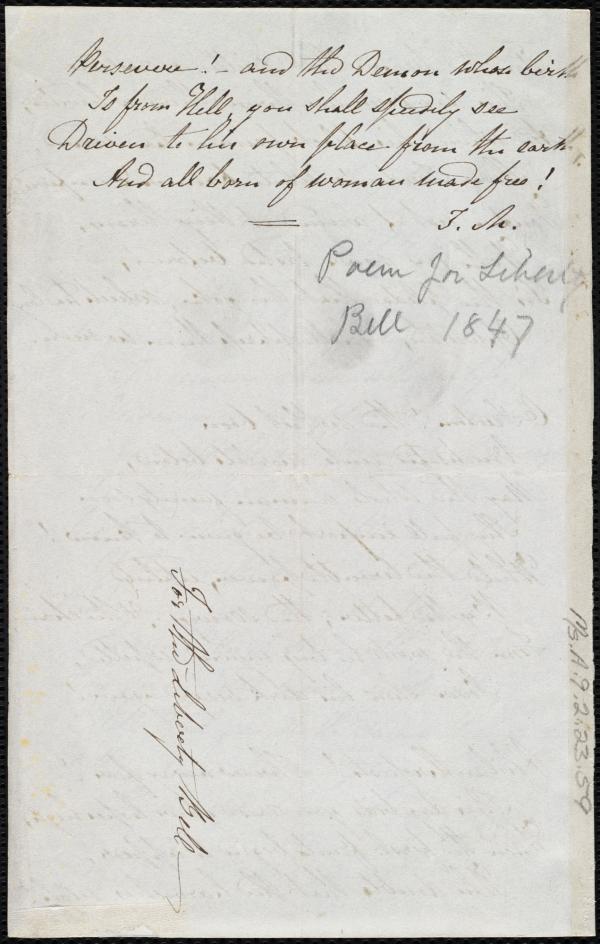 Persevere! – and the Demon whose birth
Is from Hell, you shall speedily see
Driven to his own place from the earth
And all born of woman made free!
J. M.
Poem for Liberty
Bell 1847
For the Liberty Bell
Ms.A.9.2.23.59